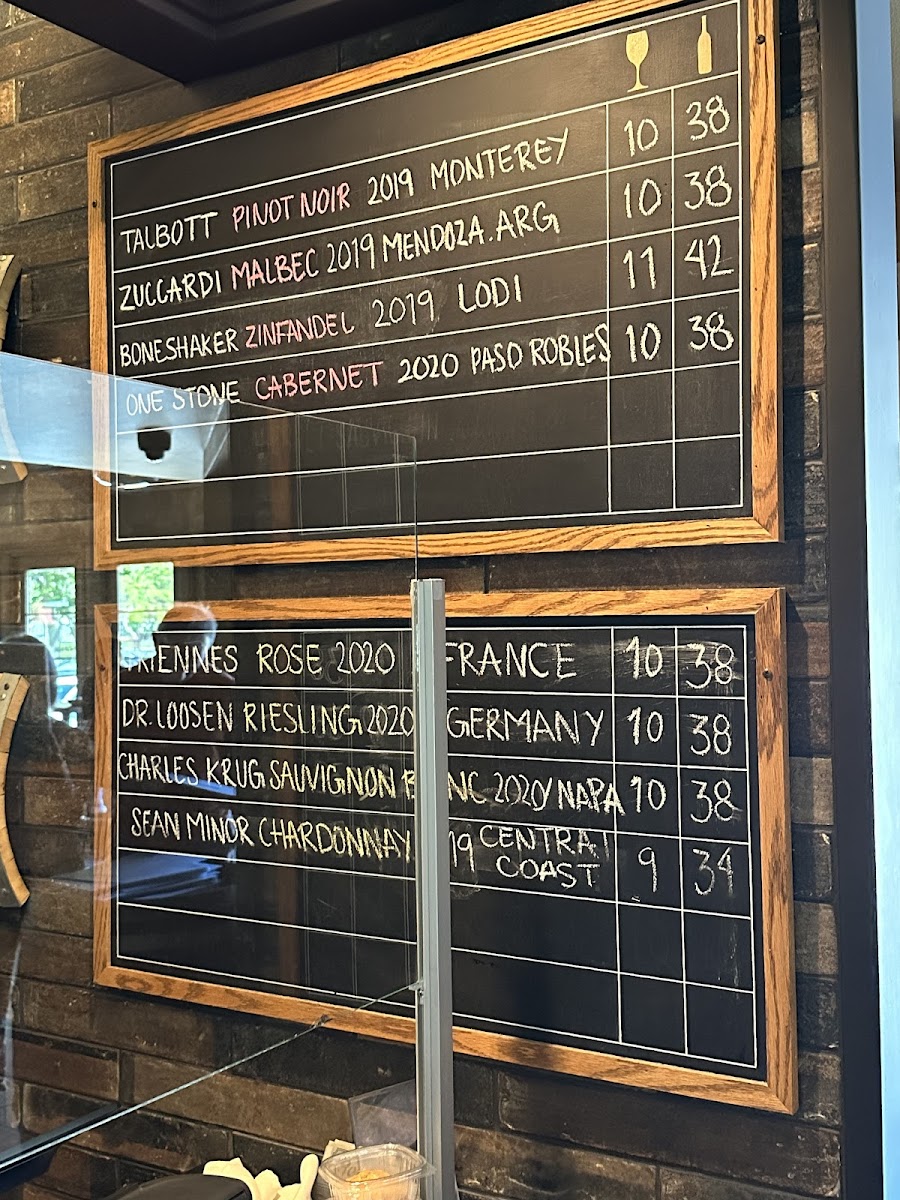 TALBOTT PINOT NOIR 2019 MONTEREY 10 38
ZUCCARDI MALBEC 2019 MENDOZA. ARG 10 38
BONESHAKER ZINFANDEL 2019 LODI 11 42
ONE STONE CABERNET 2020 PASO ROBLES 10 38
ROSE 2020 FRANCE 10 38
DR. LOOSEN RIESLING 2020 GERMANY 10 38
CHARLES KRUG SAUVIGNON 2020 NAPA 10 38
SEAN MINOR CHARDONNAY 19 CENTRAL
COAST 9 34